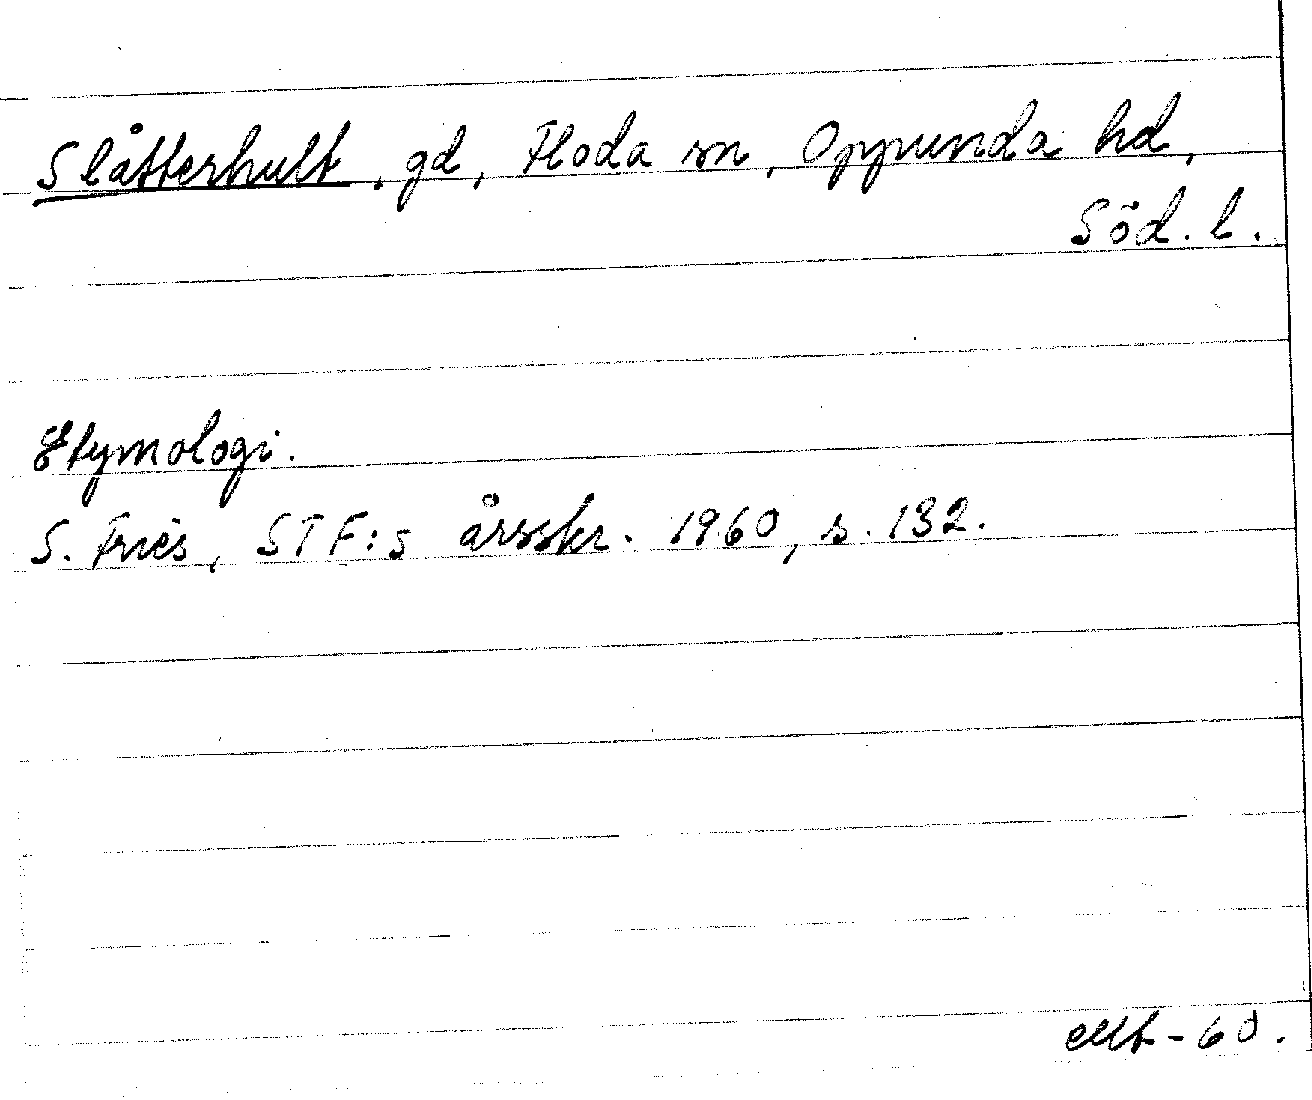 Slåtterhult, gd, Floda sn, Oppunda hd,
Söd. l.
Etymologi.
S. Fries, STF:s årsskr. 1960, s. 132.
-60.